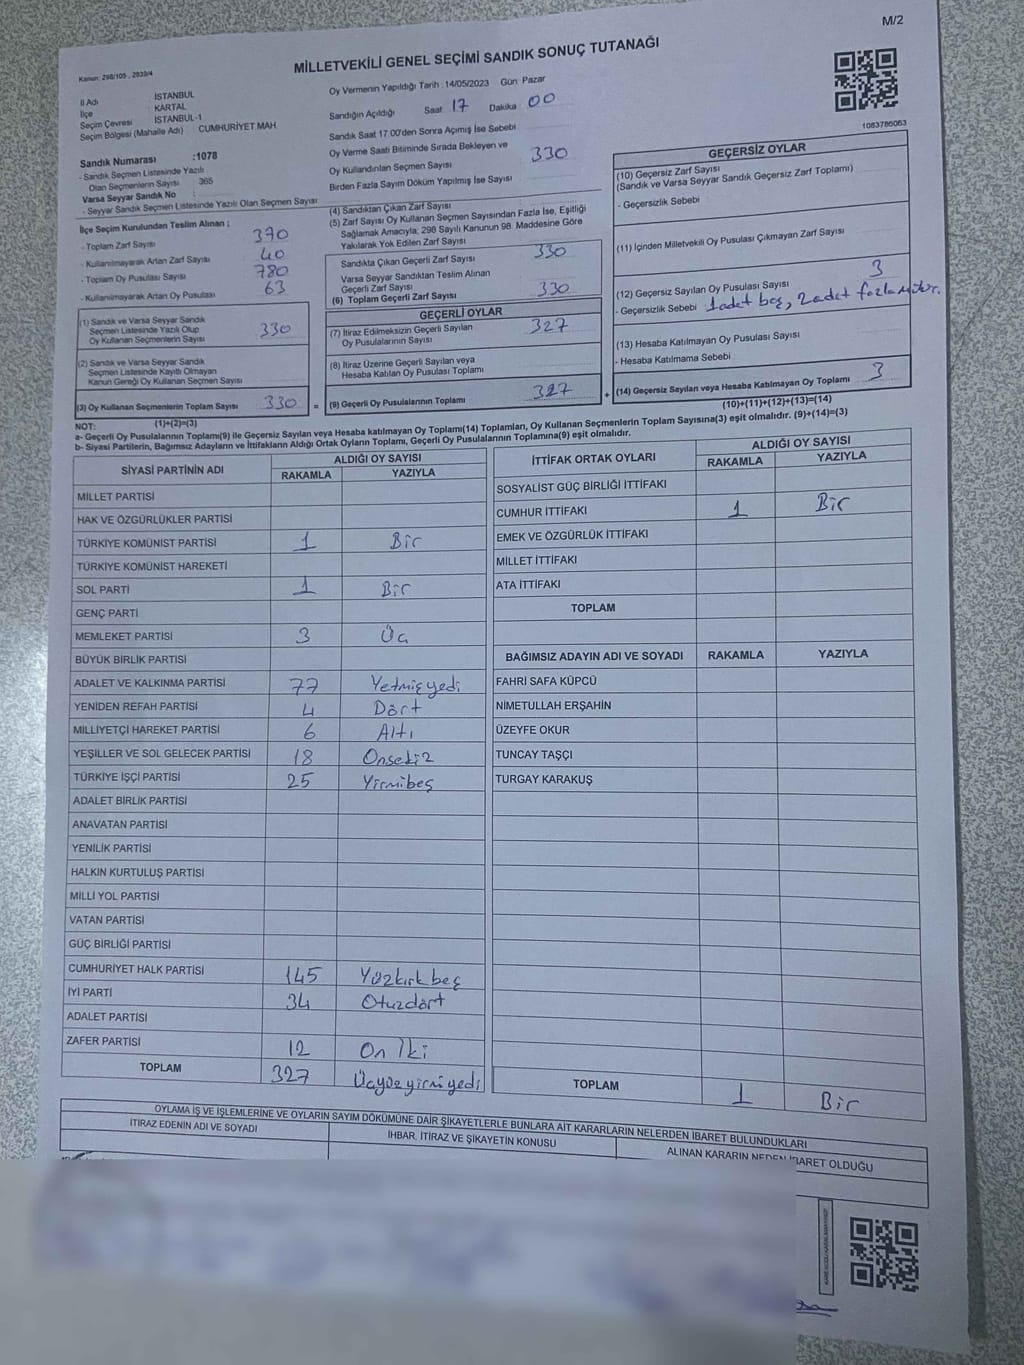 M/2
MİLLETVEKİLİ GENEL SEÇİMİ SANDIK SONUÇ TUTANAĞI
Kanun: 298/105 , 2839/4
İl Adı İSTANBUL
İlçe KARTAL
Seçim Çevresi İSTANBUL-1
Seçim Bölgesi (Mahalle Adı) CUMHURİYET MAH.
Sandık Numarası :1078
- Sandık Seçmen Listesinde Yazılı
Olan Seçmenlerin Sayısı 365
Varsa Seyyar Sandık No :
- Seyyar Sandık Seçmen Listesinde Yazılı Olan Seçmen Sayısı
İlçe Seçim Kurulundan Teslim Alınan ;
- Toplam Zarf Sayısı 370
- Kullanılmayarak Artan Zarf Sayısı 40
- Toplam Oy Pusulası Sayısı 780
- Kullanılmayarak Artan Oy Pusulası 63
(1) Sandık ve Varsa Seyyar Sandık
Seçmen Listesinde Yazılı Olup
Oy Kullanan Seçmenlerin Sayısı 330
(2) Sandık ve Varsa Seyyar Sandık
Seçmen Listesinde Kayıtlı Olmayan
Kanun Gereği Oy Kullanan Seçmen Sayısı
(3) Oy Kullanan Seçmenlerin Toplam Sayısı 330 =
(1)+(2)=(3)
Oy Vermenin Yapıldığı Tarih : 14/05/2023 Gün Pazar
Sandığın Açıldığı Saat 17 Dakika 00
Sandık Saat 17.00'den Sonra Açımış İse Sebebi
Oy Verme Saati Bitiminde Sırada Bekleyen ve
Oy Kullandırılan Seçmen Sayısı 330
Birden Fazla Sayım Döküm Yapılmış İse Sayısı
(4) Sandıktan Çıkan Zarf Sayısı
(5) Zarf Sayısı Oy Kullanan Seçmen Sayısından Fazla İse, Eşitliği
Sağlamak Amacıyla, 298 Sayılı Kanunun 98. Maddesine Göre
Yakılarak Yok Edilen Zarf Sayısı
Sandıkta Çıkan Geçerli Zarf Sayısı 330
Varsa Seyyar Sandıktan Teslim Alınan
Geçerli Zarf Sayısı
(6) Toplam Geçerli Zarf Sayısı 330
GEÇERLİ OYLAR
(7) İtiraz Edilmeksizin Geçerli Sayılan
Oy Pusulalarının Sayısı 327
(8) İtiraz Üzerine Geçerli Sayılan veya
Hesaba Katılan Oy Pusulası Toplamı
(9) Geçerli Oy Pusulalarının Toplamı 327 +
1083786063
GEÇERSİZ OYLAR
(10) Geçersiz Zarf Sayısı
(Sandık ve Varsa Seyyar Sandık Geçersiz Zarf Toplamı)
- Geçersizlik Sebebi
(11) İçinden Milletvekili Oy Pusulası Çıkmayan Zarf Sayısı
(12) Geçersiz Sayılan Oy Pusulası Sayısı 3
- Geçersizlik Sebebi 1adet boş, 2adet fazla mühür.
(13) Hesaba Katılmayan Oy Pusulası Sayısı
- Hesaba Katılmama Sebebi
(14) Geçersiz Sayılan veya Hesaba Katılmayan Oy Toplamı 3
(10)+(11)+(12)+(13)=(14)
NOT:
a- Geçerli Oy Pusulalarının Toplamı(9) ile Geçersiz Sayılan veya Hesaba katılmayan Oy Toplamı(14) Toplamları, Oy Kullanan Seçmenlerin Toplam Sayısına(3) eşit olmalıdır. (9)+(14)=(3)
b- Siyasi Partilerin, Bağımsız Adayların ve İttifakların Aldığı Ortak Oyların Toplamı, Geçerli Oy Pusulalarının Toplamına(9) eşit olmalıdır.
SİYASİ PARTİNİN ADI ALDIĞI OY SAYISI
RAKAMLA YAZIYLA
MİLLET PARTİSİ
HAK VE ÖZGÜRLÜKLER PARTİSİ
TÜRKİYE KOMÜNİST PARTİSİ 1 Bir
TÜRKİYE KOMÜNİST HAREKETİ
SOL PARTİ 1 Bir
GENÇ PARTİ
MEMLEKET PARTİSİ 3 Üç
BÜYÜK BİRLİK PARTİSİ
ADALET VE KALKINMA PARTİSİ 77 Yetmişyedi
YENİDEN REFAH PARTİSİ 4 Dört
MİLLİYETÇİ HAREKET PARTİSİ 6 Altı
YEŞİLLER VE SOL GELECEK PARTİSİ 18 Onsekiz
TÜRKİYE İŞÇİ PARTİSİ 25 Yirmibeş
ADALET BİRLİK PARTİSİ
ANAVATAN PARTİSİ
YENİLİK PARTİSİ
HALKIN KURTULUŞ PARTİSİ
MİLLİ YOL PARTİSİ
VATAN PARTİSİ
GÜÇ BİRLİĞİ PARTİSİ
CUMHURİYET HALK PARTİSİ 145 Yüzkırkbeş
İYİ PARTİ 34 Otuzdört
ADALET PARTİSİ
ZAFER PARTİSİ 12 On İki
TOPLAM 327 Üçyüzyirmiyedi
İTTİFAK ORTAK OYLARI ALDIĞI OY SAYISI
RAKAMLA YAZIYLA
SOSYALİST GÜÇ BİRLİĞİ İTTİFAKI
CUMHUR İTTİFAKI 1 Bir
EMEK VE ÖZGÜRLÜK İTTİFAKI
MİLLET İTTİFAKI
ATA İTTİFAKI
TOPLAM
BAĞIMSIZ ADAYIN ADI VE SOYADI RAKAMLA YAZIYLA
FAHRİ SAFA KÜPCÜ
NİMETULLAH ERŞAHİN
ÜZEYFE OKUR
TUNCAY TAŞÇI
TURGAY KARAKUŞ
TOPLAM 1 Bir
OYLAMA İŞ VE İŞLEMLERİNE VE OYLARIN SAYIM DÖKÜMÜNE DAİR ŞİKAYETLERLE BUNLARA AİT KARARLARIN NELERDEN İBARET BULUNDUKLARI
İTİRAZ EDENİN ADI VE SOYADI İHBAR, İTİRAZ VE ŞİKAYETİN KONUSU ALINAN KARARIN NEDEN İBARET OLDUĞU